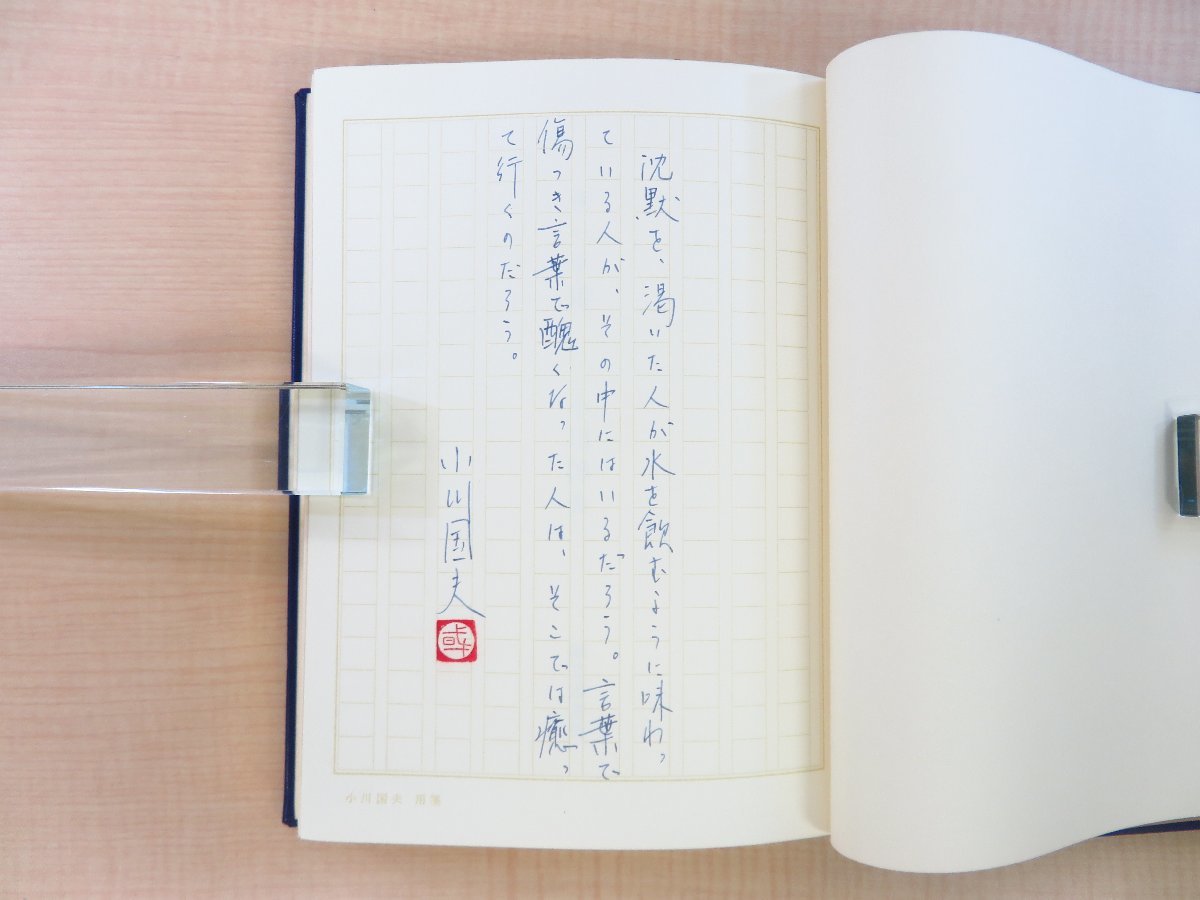 沈黙を、渇いた人が水を飲むように味わっ
ている人が、その中にはいるだろう。言葉で
傷つき言葉で醜くなった人は、そこでは癒っ
て行くのだろう。
小川国夫
小川国夫 用箋